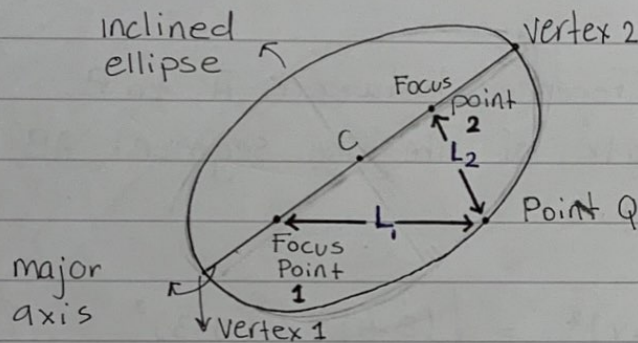 inclined
ellipse
Vertex 2
Focus
Point
2
C
L2
L1
Point Q
Focus
Point
1
major
axis
Vertex 1